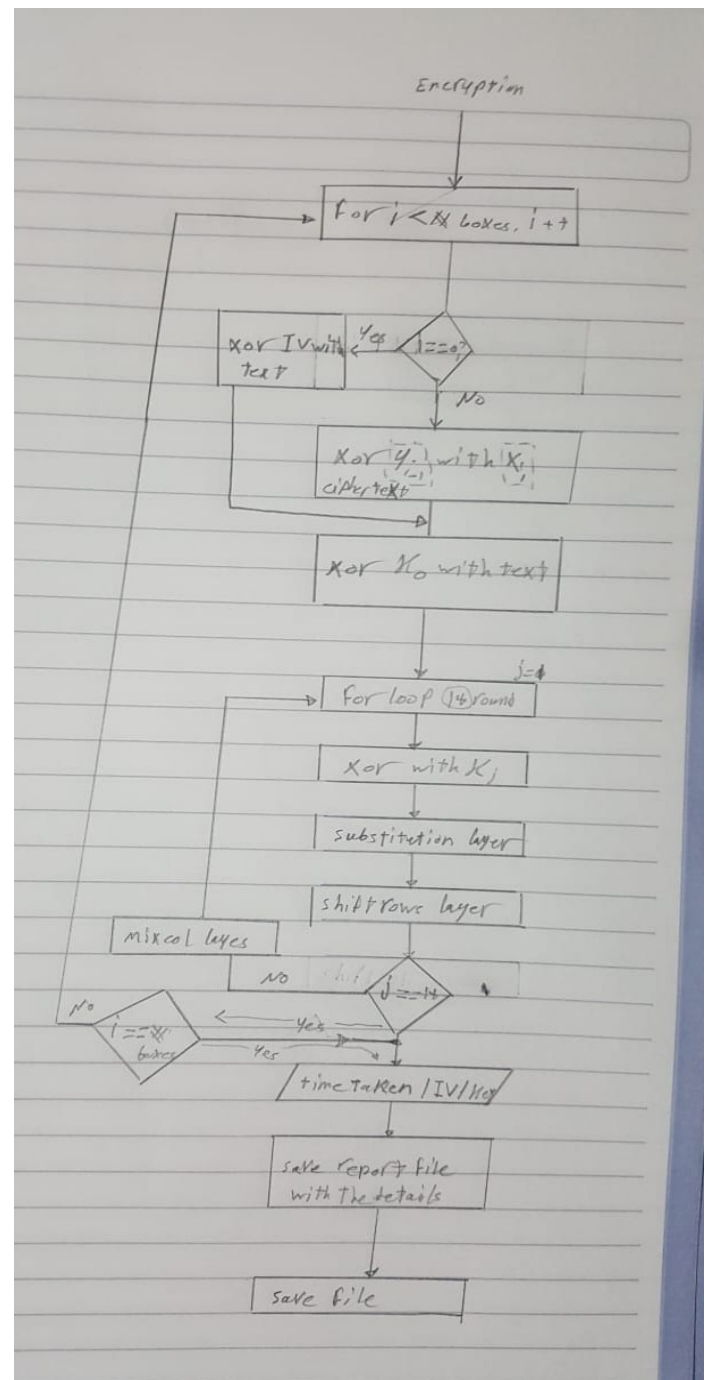 Encryption
For i < # boxes, i++
i==0?
Yes
xor IV with
text
No
xor y i-1 with xi
ciphertext
xor K0 with text
j=1
For loop 14 round
xor with Kj
substitution layer
shiftrows layer
mixcol layes
No
j==14
Yes
No
i==#
boxes
Yes
time taken / IV / Key
save report file
with the details
save file